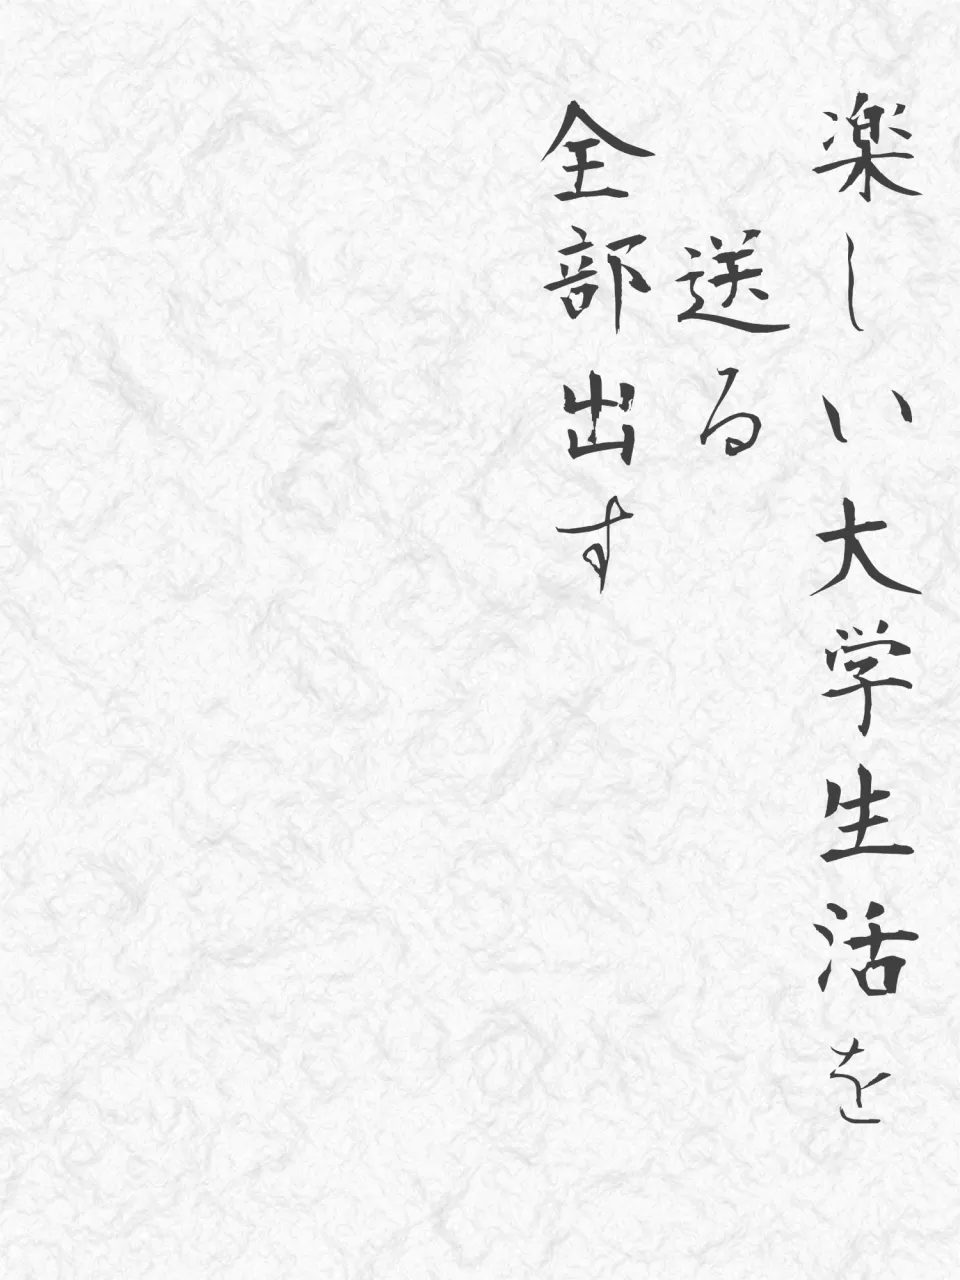 楽しい大学生活を
送る
全部出す